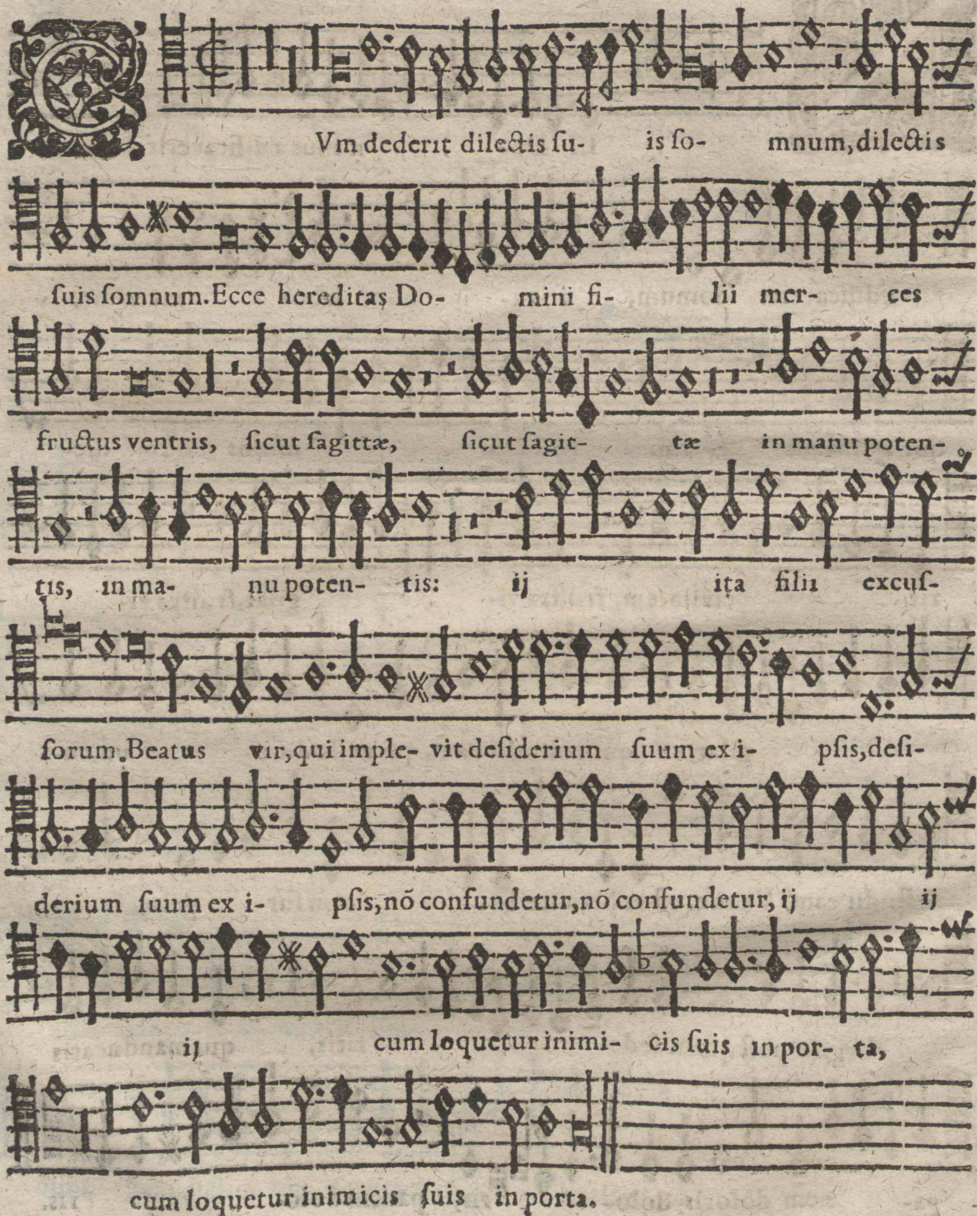 CVm dederit dilectis su- is so- mnum, dilectis
suis somnum. Ecce hereditas Do- mini fi- lii mer- ces
fructus ventris, sicut sagittæ, sicut sagit- tæ in manu poten-
tis, in ma- nu poten- tis: ij ita filii excus-
sorum. Beatus vir, qui imple- vit desiderium suum ex i- psis, desi-
derium suum ex i- psis, nõ confundetur, nõ confundetur, ij ij
ij cum loquetur inimi- cis suis in por- ta,
cum loquetur inimicis suis in porta.